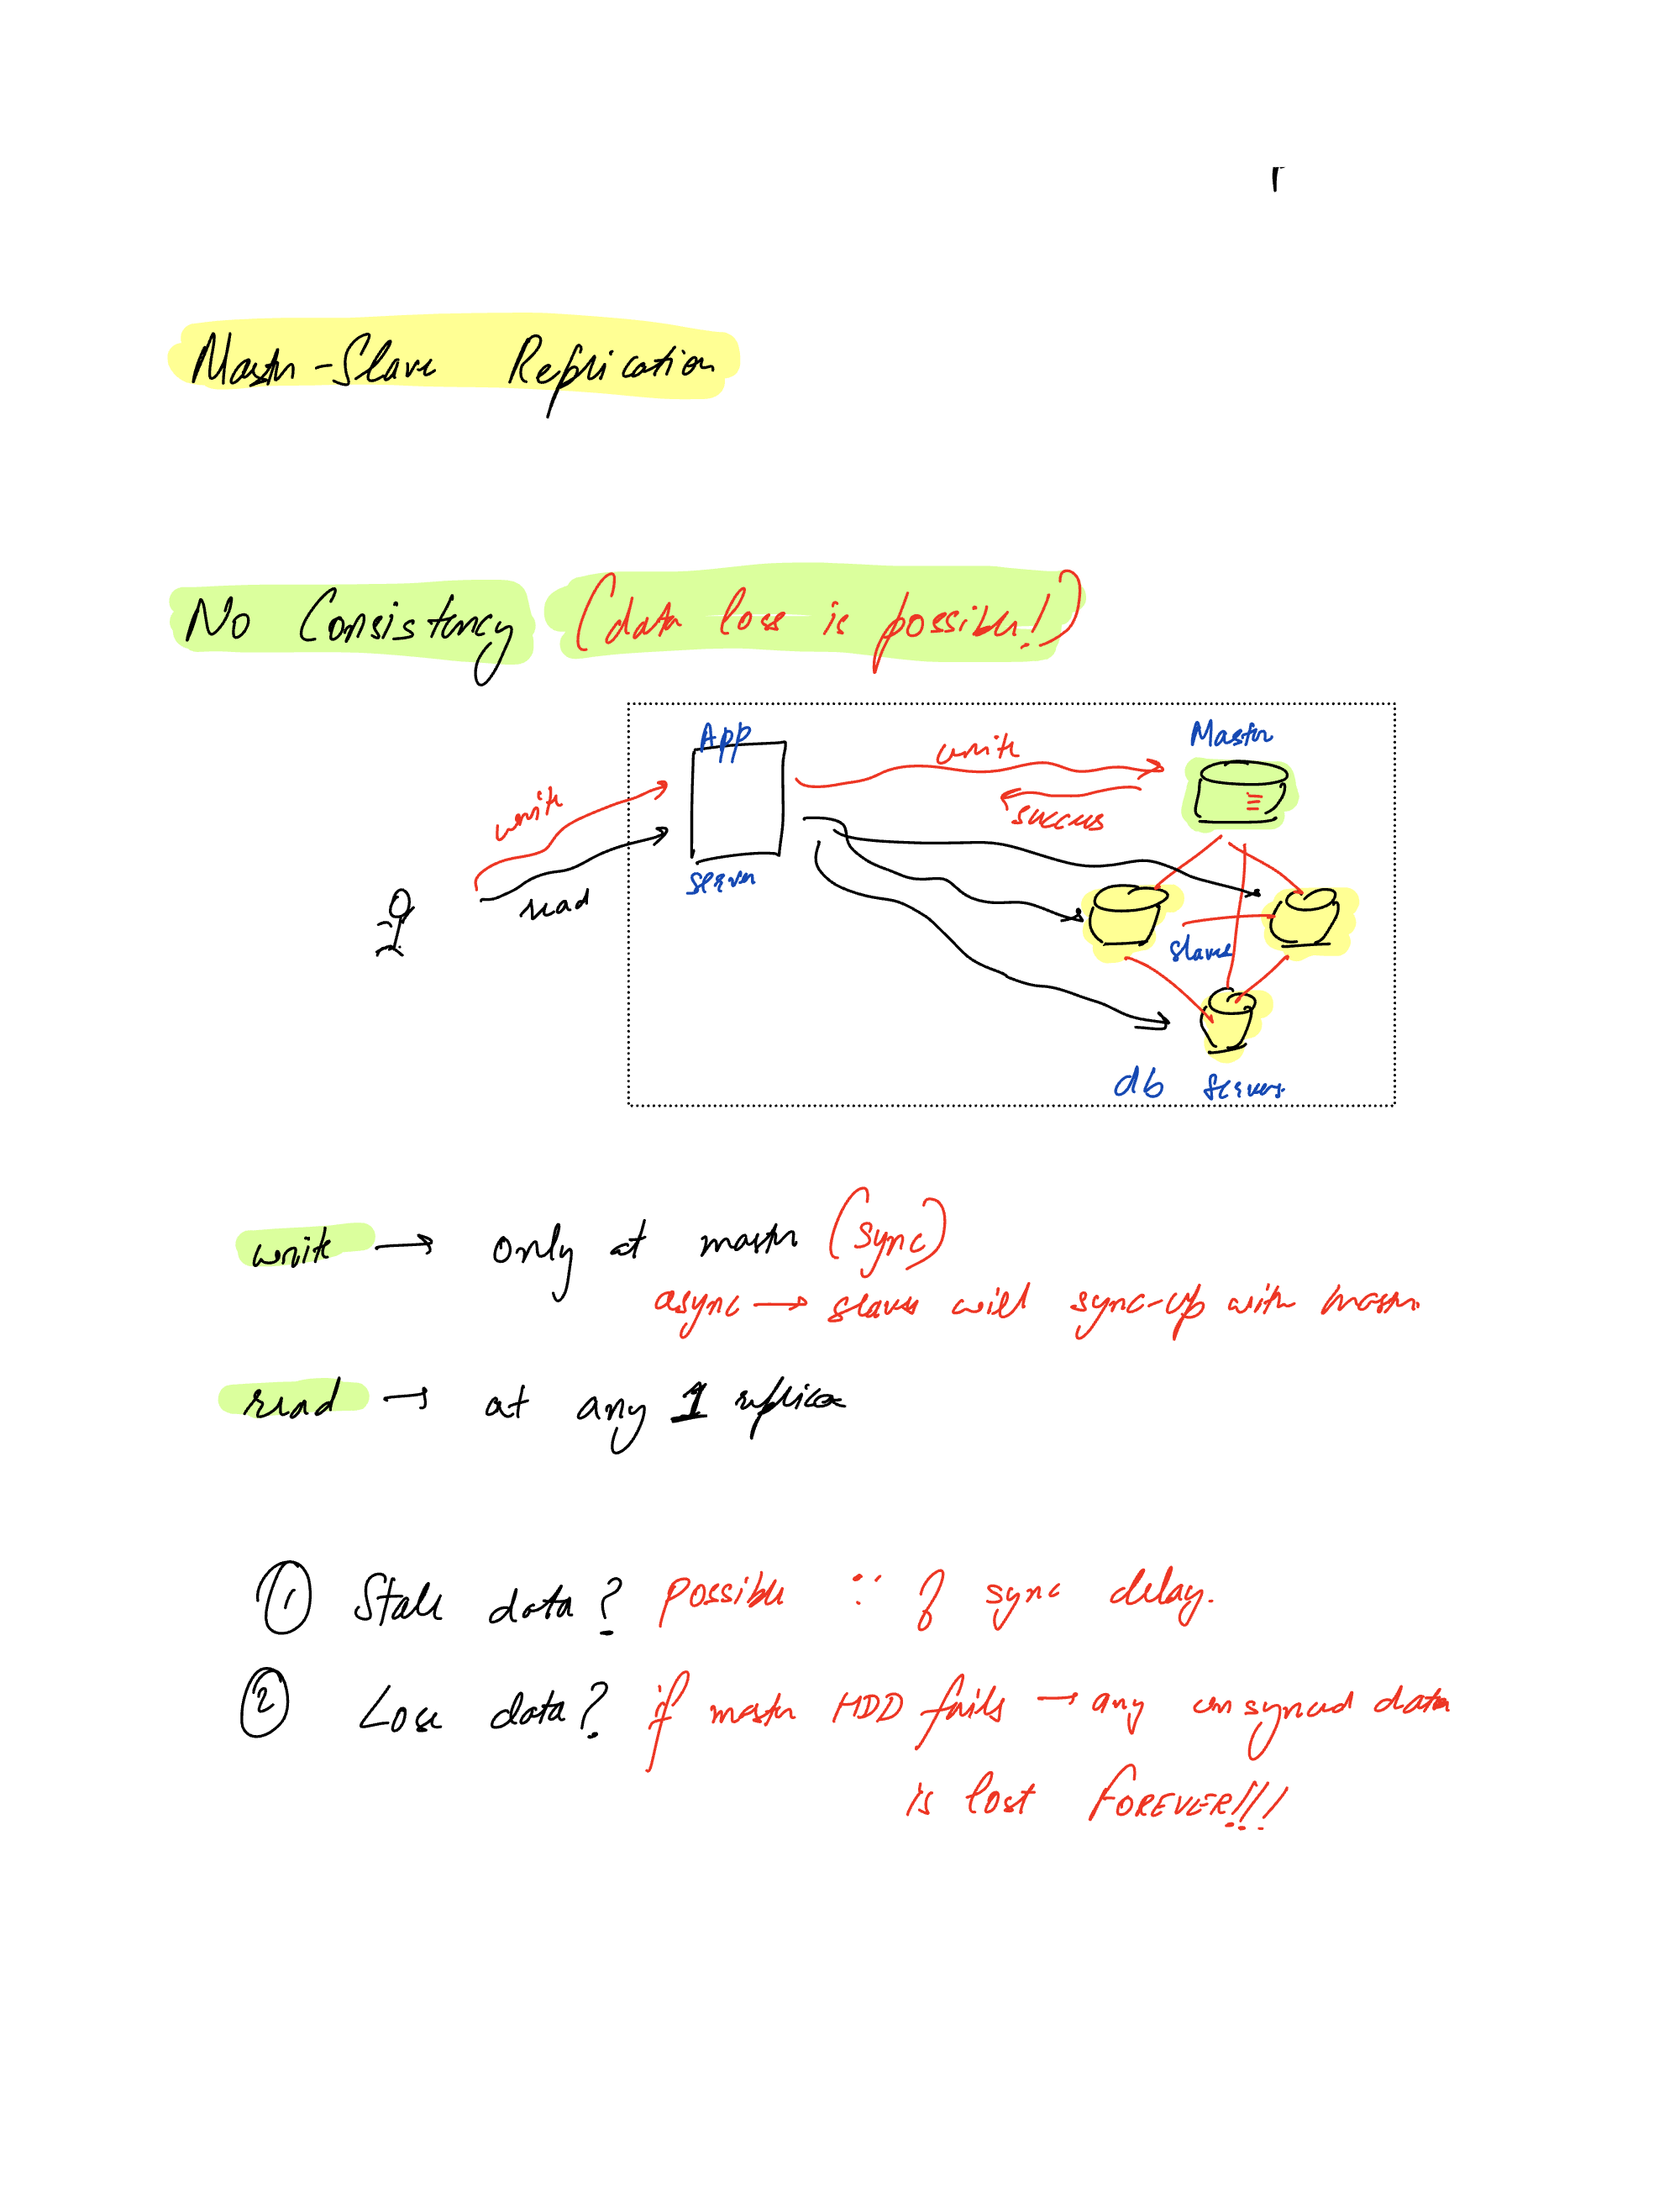 Master-Slave Replication
No Consistency (data loss is possible!)
App
write
Master
write
success
Server
read
slaves
db servers
write → only at master (sync)
async → slaves will sync-up with master
read → at any 1 replica
① Stale data? possible ∵ of sync delay.
② Lose data? if master HDD fails → any unsynced data
is lost FOREVER!!!